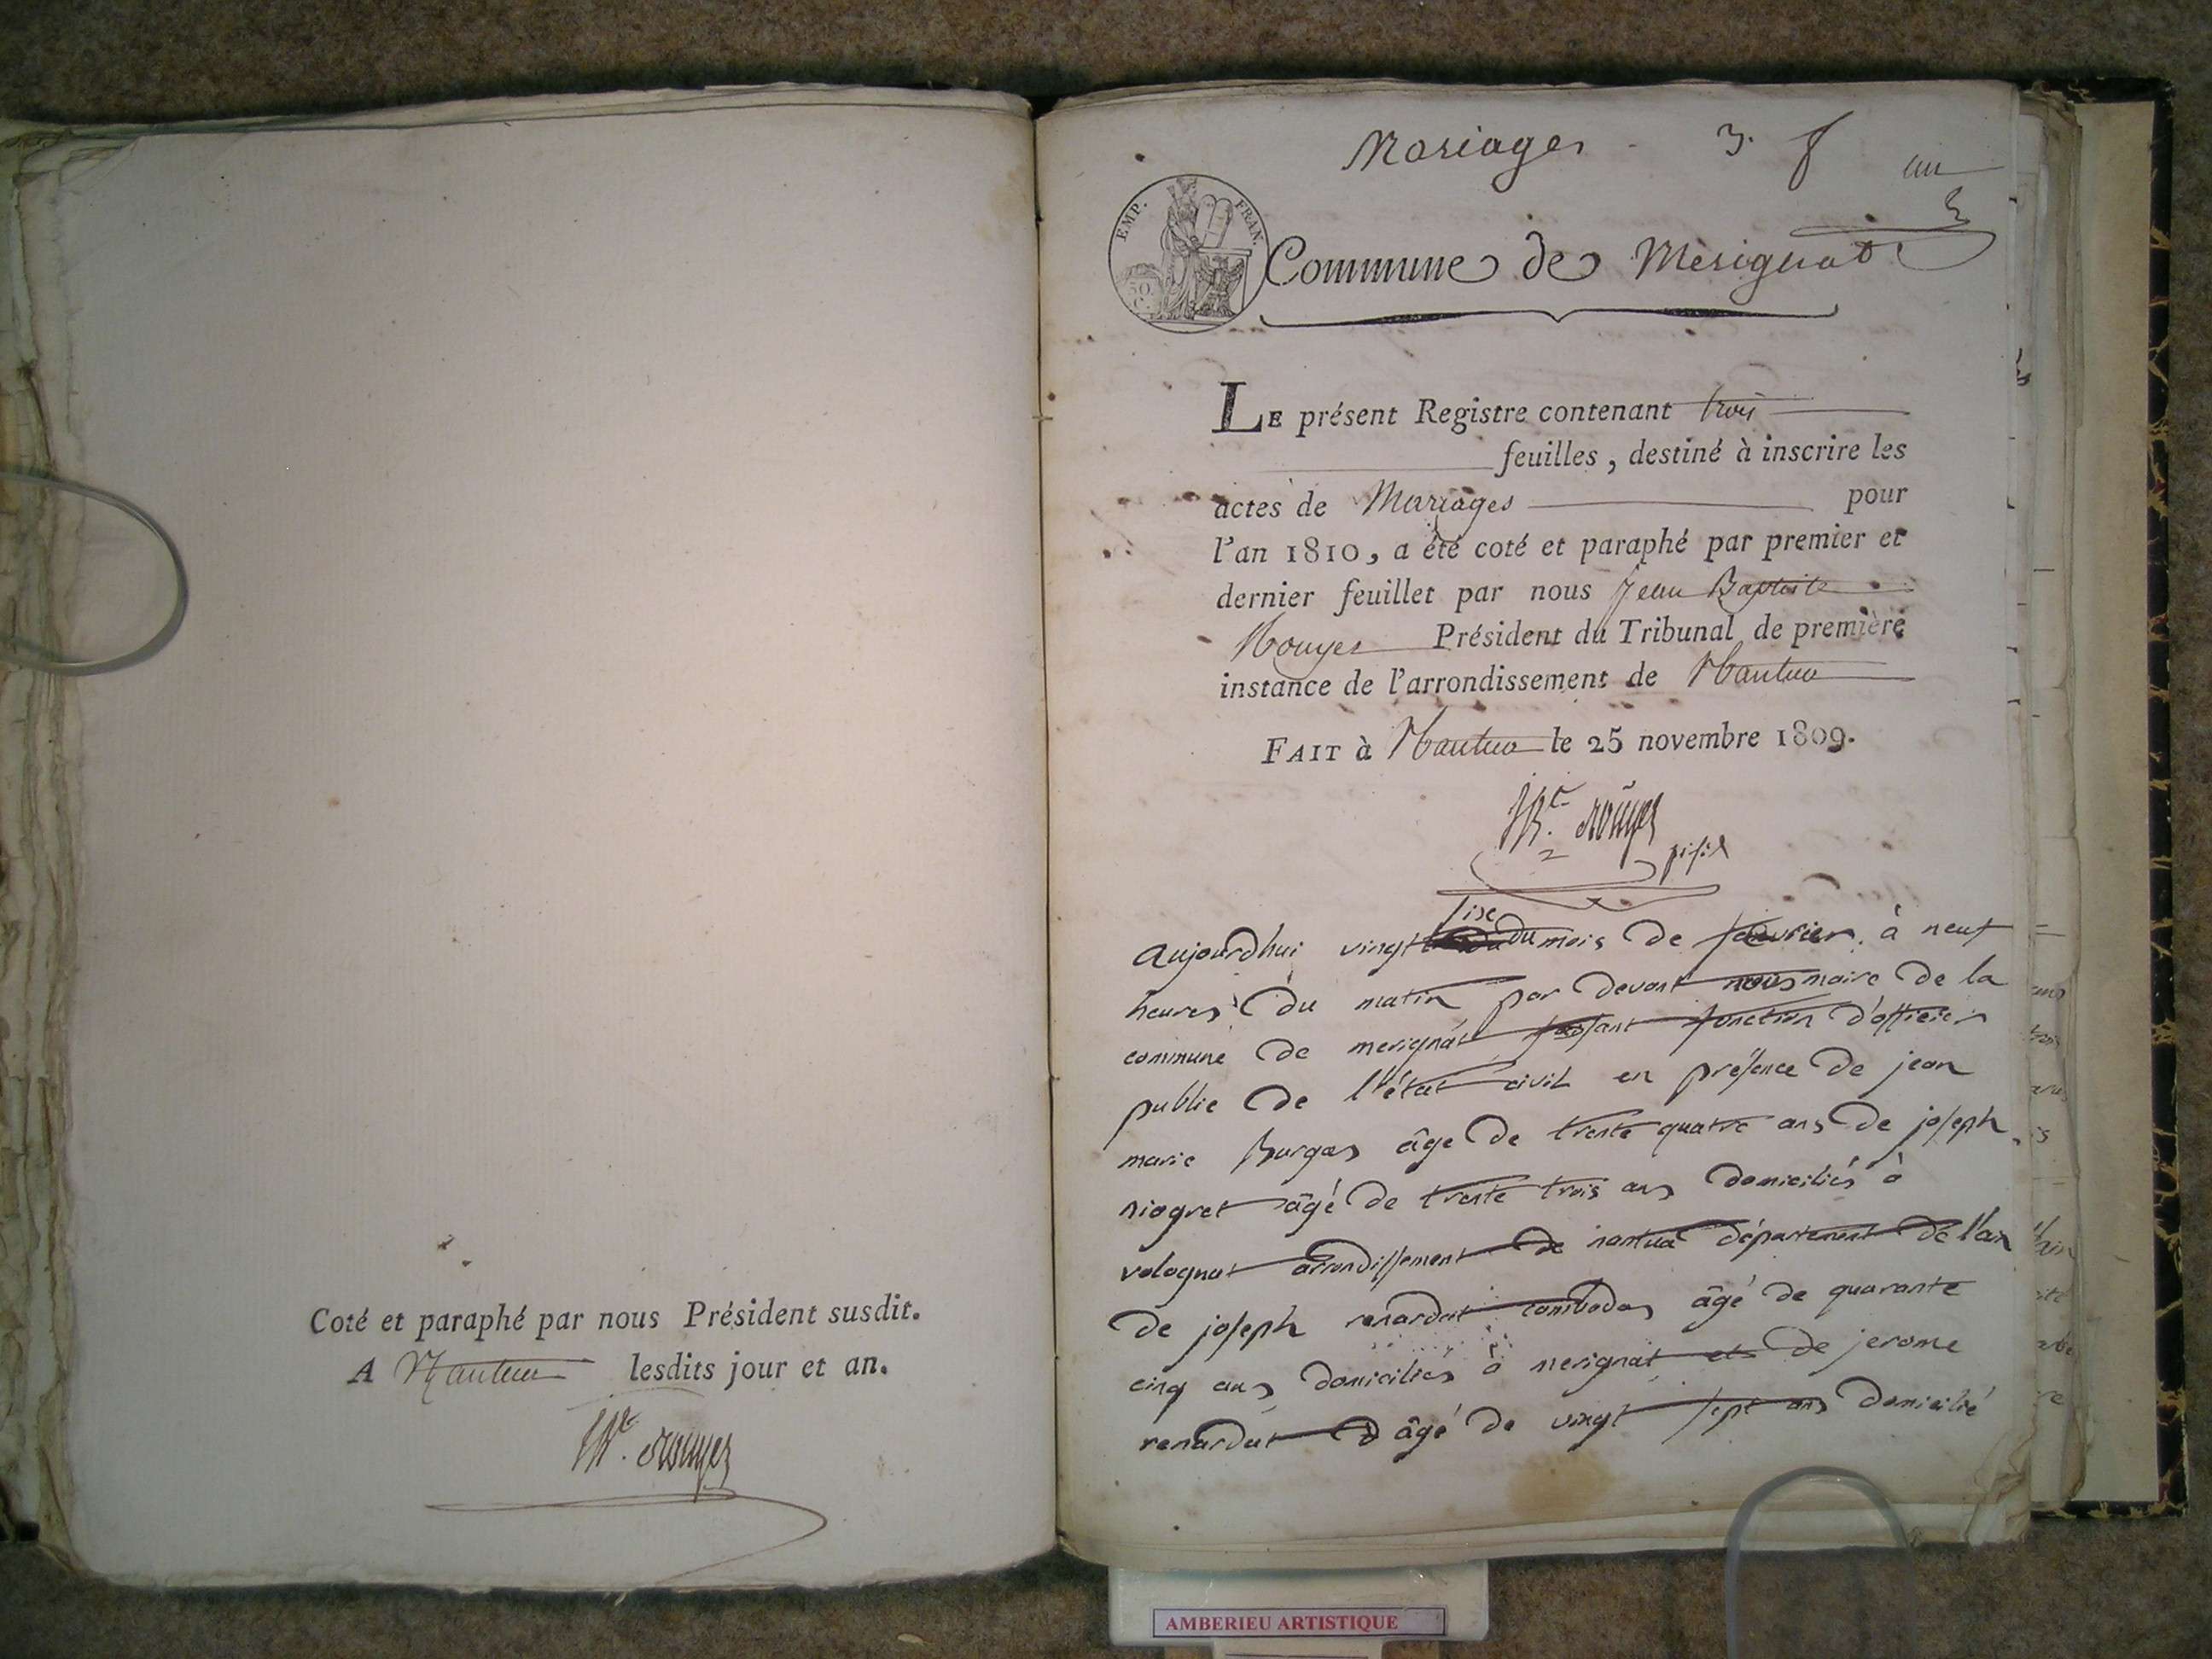 Coté et paraphé par nous Président susdit.
A Nantua lesdits jour et an.
JBte. rouyer
Mariages 3. f un
EMP. FRAN.
50. C.
Commune de Mérignat
LE présent Registre contenant trois
feuilles, destiné à inscrire les
actes de Mariages pour
l'an 1810, a été coté et paraphé par premier et
dernier feuillet par nous Jean Baptiste
Rouyer Président du Tribunal de première
instance de l'arrondissement de Nantua
FAIT à Nantua le 25 novembre 1809.
JBte. rouyer
aujourdhui vingt sixe du mois de fevrier à neuf
heures du matin par devant nous maire de la
commune de merignat faisant fonction d'officier
public de l'état civil en présence de jean
marie Burgas âge de trente quatre ans de joseph
niogret âgé de trente trois ans domiciliés à
volognat arrondissement de nantua département de l'ain
de joseph renardat âgé de quarante
cinq ans domiciliés à merignat et de jerome
renardat âgé de vingt sept ans domicilié
AMBERIEU ARTISTIQUE